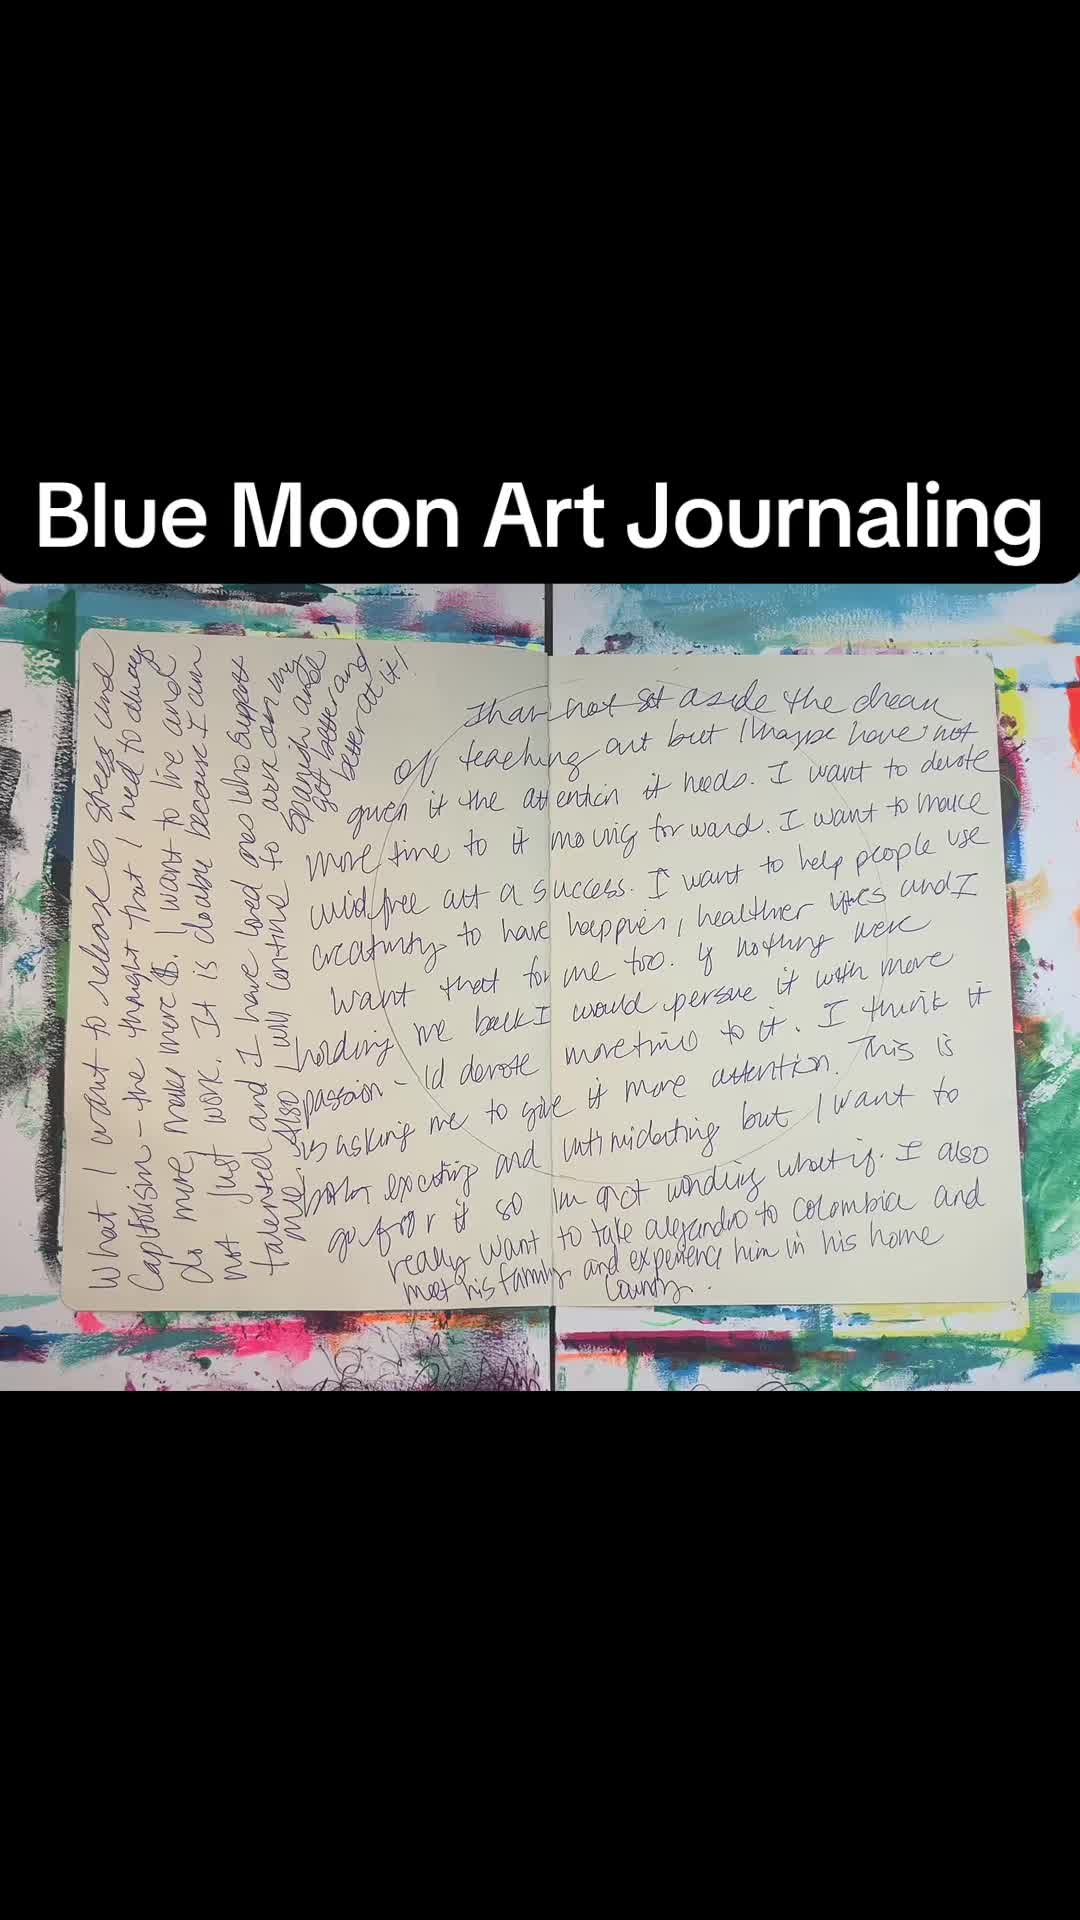 Blue Moon Art Journaling
What I want to release is stress and
Capitolism - the thought that I need to always
do more, make more $. I want to live and
not just work. It is doable because I am
talented and I have loved ones who support
me. Also I will continue to work on my
Spanish and
get better and
better at it!
I have not set aside the dream
of teaching art but I maybe have not
given it the attention it needs. I want to devote
more time to it moving forward. I want to make
wild free art a success. I want to help people use
creativity to have happier, healthier lives and I
want that for me too. If nothing were
holding me back I would persue it with more
passion - I'd devote more time to it. I think it
is asking me to give it more attention. This is
both exciting and intimidating but I want to
go for it so I'm not wondering what if. I also
really want to take alejandro to colombia and
meet his family and experience him in his home
country.